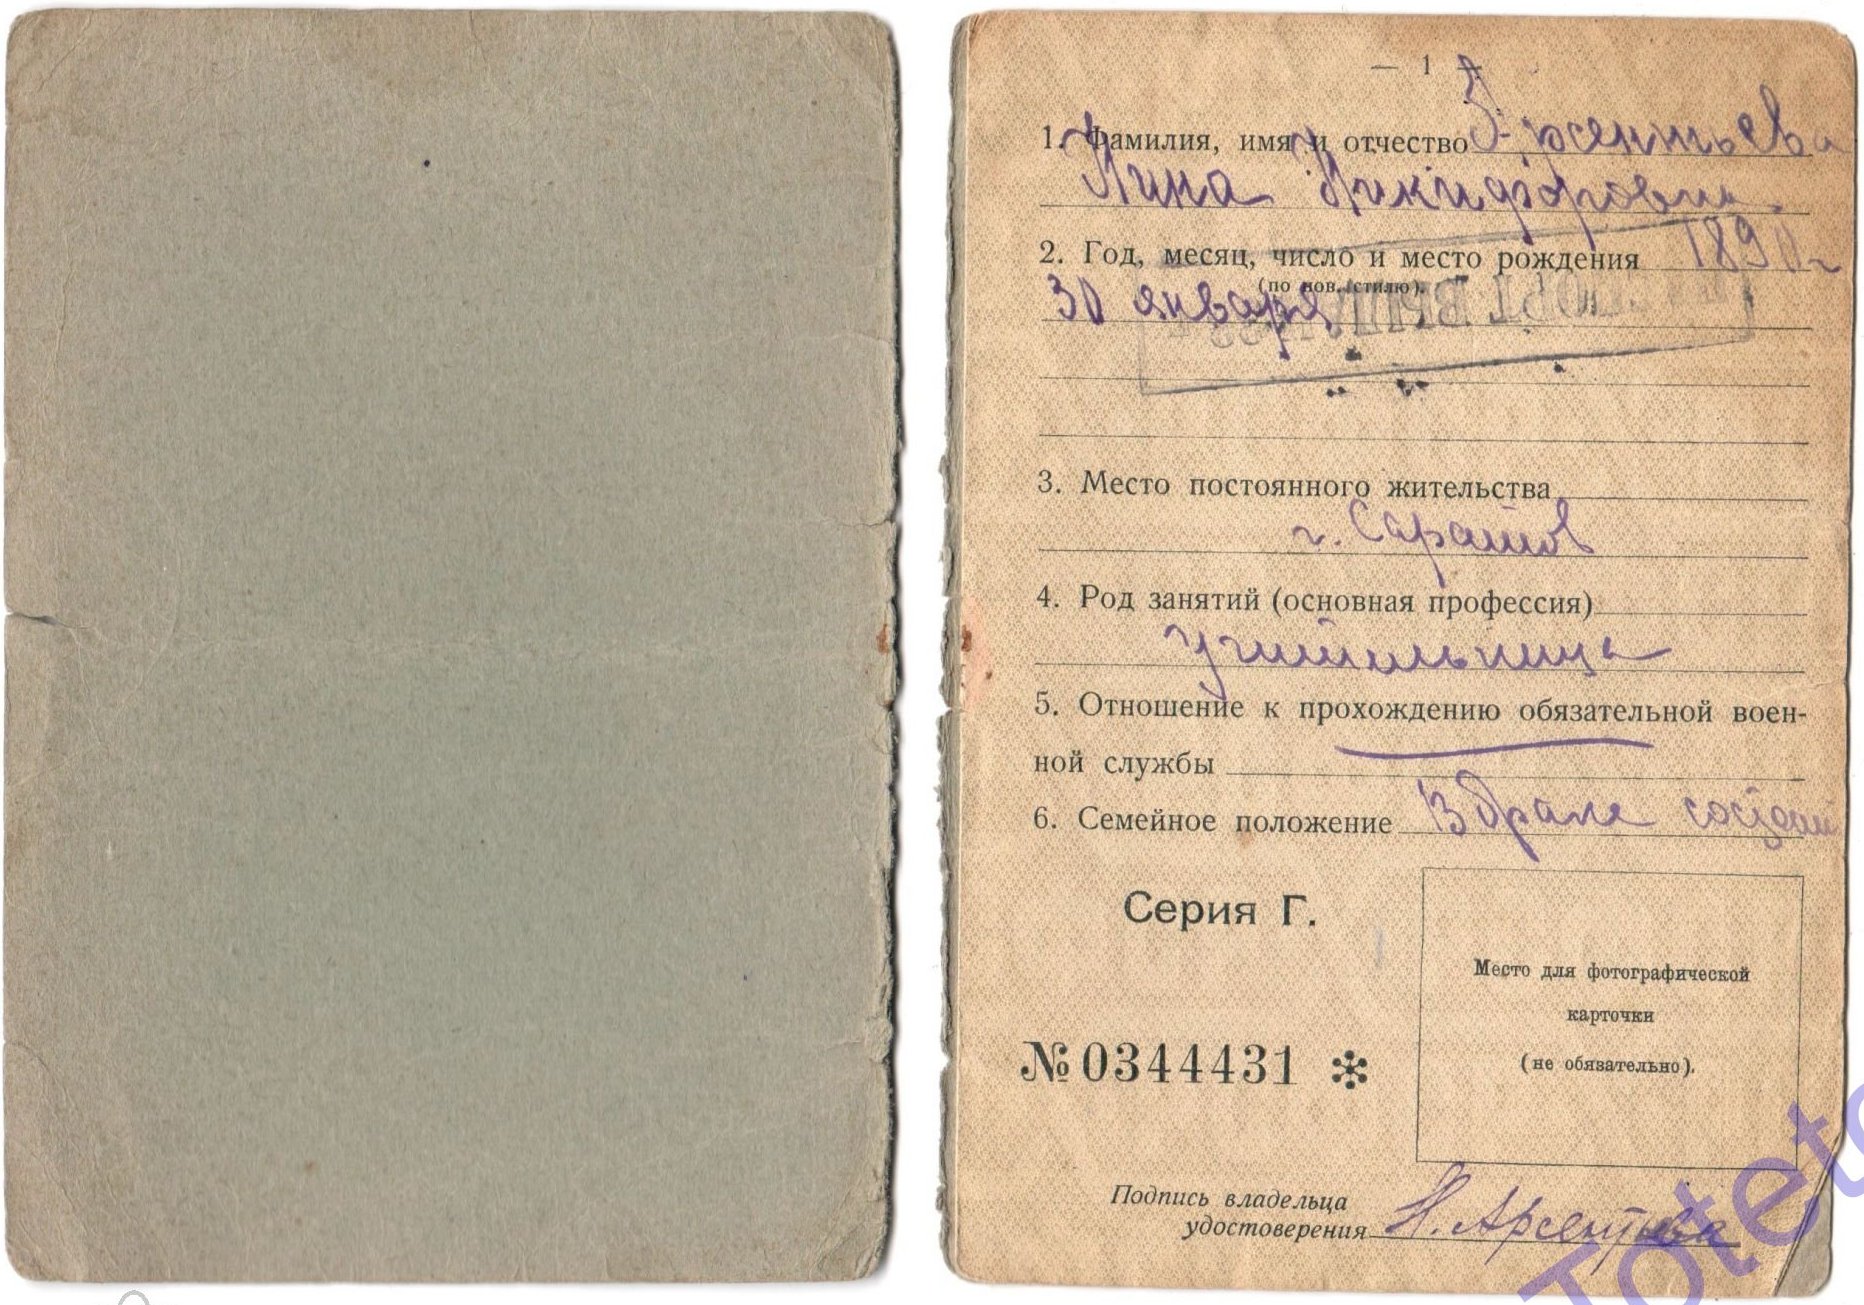 — 1 —
1. Фамилия, имя и отчество Арсентьева
Нина Никифоровна
2. Год, месяц, число и место рождения 1890 г
(по нов. стилю).
30 января
3. Место постоянного жительства
г. Саратов
4. Род занятий (основная профессия)
учительница
5. Отношение к прохождению обязательной воен-
ной службы
6. Семейное положение В браке состоит
Серия Г.
Место для фотографической
карточки
(не обязательно).
№ 0344431 *
Подпись владельца
удостоверения Н. Арсентьева